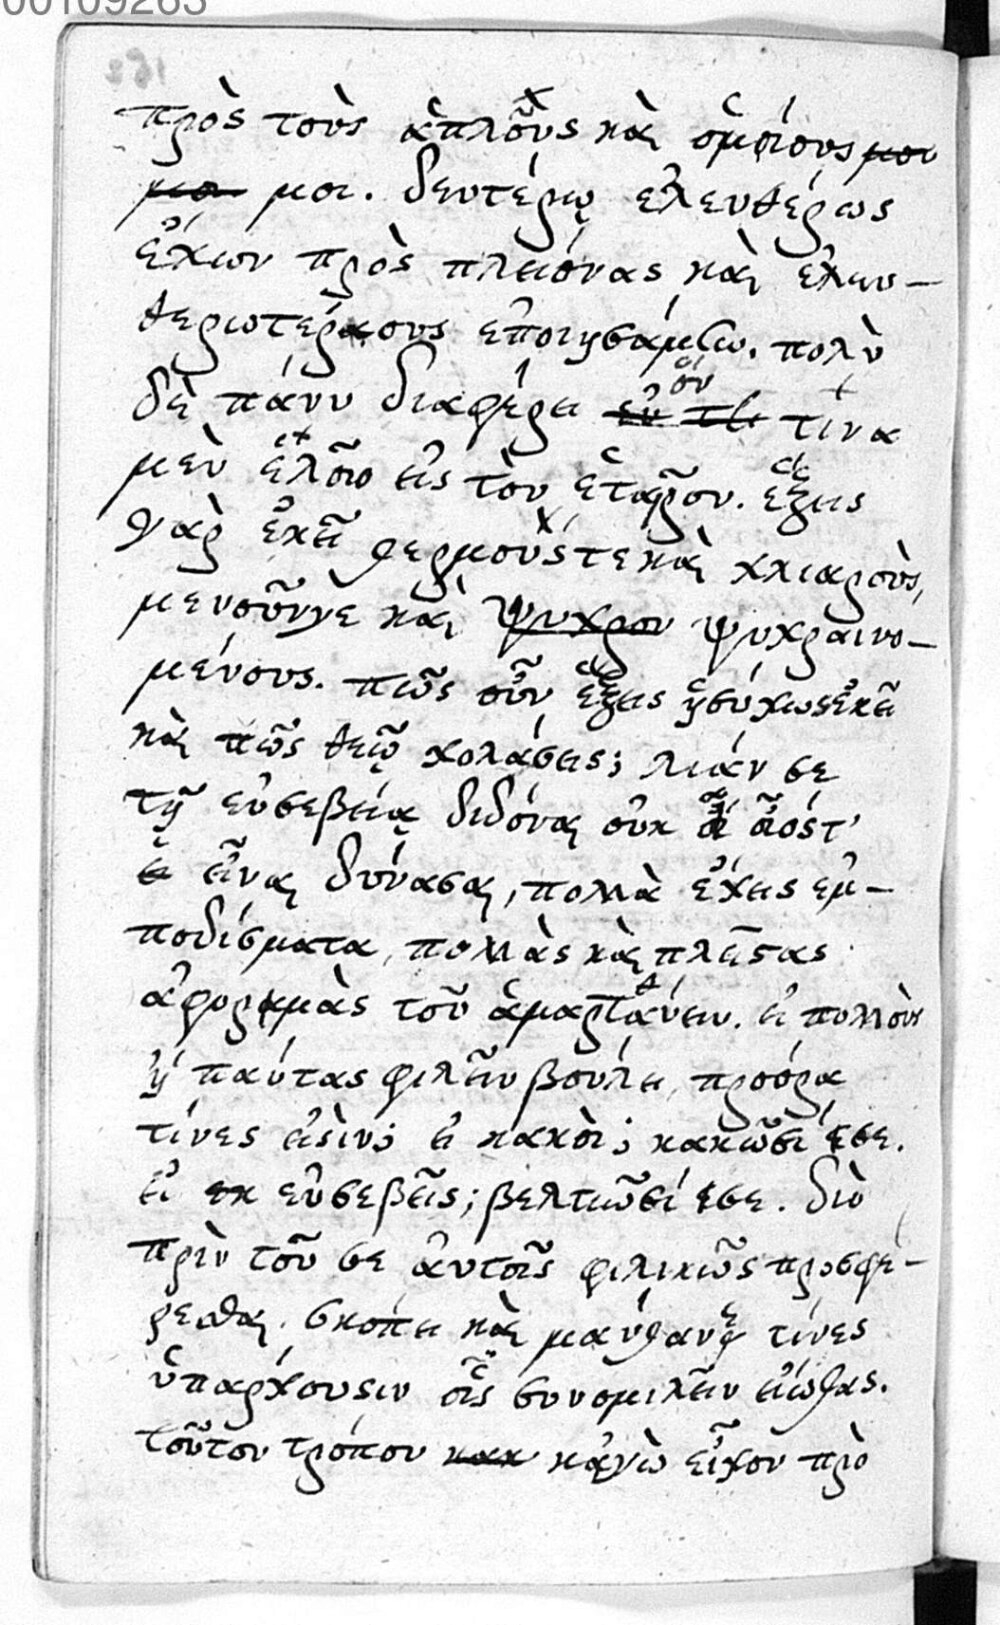 00109263
162
πρὸς τοὺς ἁπλοῦς καὶ ὁμοίους μου
μοι. δευτέρῳ ἐλευθέρως
ἔχων πρὸς πλείονας καὶ ἐλευ-
θερωτέρους ἐποιησάμην. πολὺ
δὲ πάνυ διαφέρει ὃν τίνα
μὲν ἕλοιο εἰς τὸν ἑταῖρον. ἕξεις
γὰρ ἐκεῖ θερμούς τε καὶ χλιαροὺς,
μενοῦνγε καὶ ψυχρον ψυχραινο-
μένους. πῶς οὖν ἕξεις ἡσύχως ἐκεῖ
καὶ πῶς θεῷ χολάσεις; λιάν σε
τῇ εὐσεβείᾳ διδόναι οὐκ οἷός τ'
εἶναι δύνασαι, πολλὰ ἔχεις ἐμ-
ποδίσματα, πολλὰς καὶ πλείστας
ἀφορμὰς τοῦ ἁμαρτάνειν. εἰ πολλοὺς
ἢ πάντας φιλεῖν βούλει, προόρα
τίνες εἰσὶν; εἰ κακοὶ; κακῶσί σε.
εἰ εκ εὐσεβεῖς; βελτιῶσί σε. διὸ
πρὶν τοῦ σε αὐτοῖς φιλικῶς προσφέ-
ρεσθαι. σκόπει καὶ μάνθανε τίνες
ὑπαρχουσιν οἷς συνομιλεῖν εἴωθας.
τοῦτον τρόπον κακ κἀγὼ εἶχον πρὸ